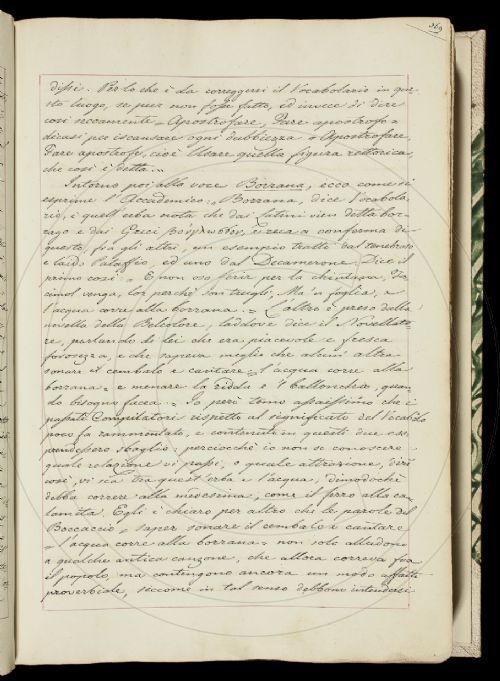 369
dissi. Perlochè è da correggersi il Vocabolario in que-
sto luogo, se pure non fosse fatto, ed invece di dire
così seccamente = Apostrofare, Fare apostrofo =
dicasi per iscansare ogni dubbiezza = Apostrofare,
Fare apostrofe, cioè Usare quella figura rettorica,
che così è detta. =
Intorno poi alla voce Borrana, ecco come si
esprime l'Accademico: Borrana, dice il vocabola-
rio, è quell'erba nota che dai Latini vien detta bor-
rago e dai Greci e reca a conferma di
questo, fra gli altri, un esempio tratto dal tenebroso
e laido Pataffio, ed uno dal Decamerone. Dice il
primo così: = E non oso ferir per la chintana,
venga, lor perchè son trugli, M'n foglia, e
l'acqua corre alla borrana. = L'altro è preso dalla
novella della Belcolore, laddove dice il Novellato-
re, parlando di lei che era piacevole e fresca
foresozza, e che sapeva meglio che alcun' altra
sonare il cembalo e cantare = l'acqua corre alla
borrana = e menare la ridda e 'l ballonchio, quan-
do bisogno facea. = Io però temo assaissimo che i
passati Compilatori rispetto al significato del Vocabolo
poco fa rammentato, e contenuto in questi due es.
prendessero sbaglio: perciocchè io non so conoscere
quale relazione vi passi, o quale attrazione, dirò
così, vi sia tra quest'erba e l'acqua, dimodochè
debba correre alla medesima, come il ferro alla ca-
lamita. Egli è chiaro per altro che le parole del
Boccaccio = saper sonare il cembalo e cantare
= l'acqua corre alla borrana = non solo alludono
a qualche antica canzone, che allora correva fra
il popolo, ma contengono ancora un modo affatto
proverbiale, siccome in tal senso debbono intendersi